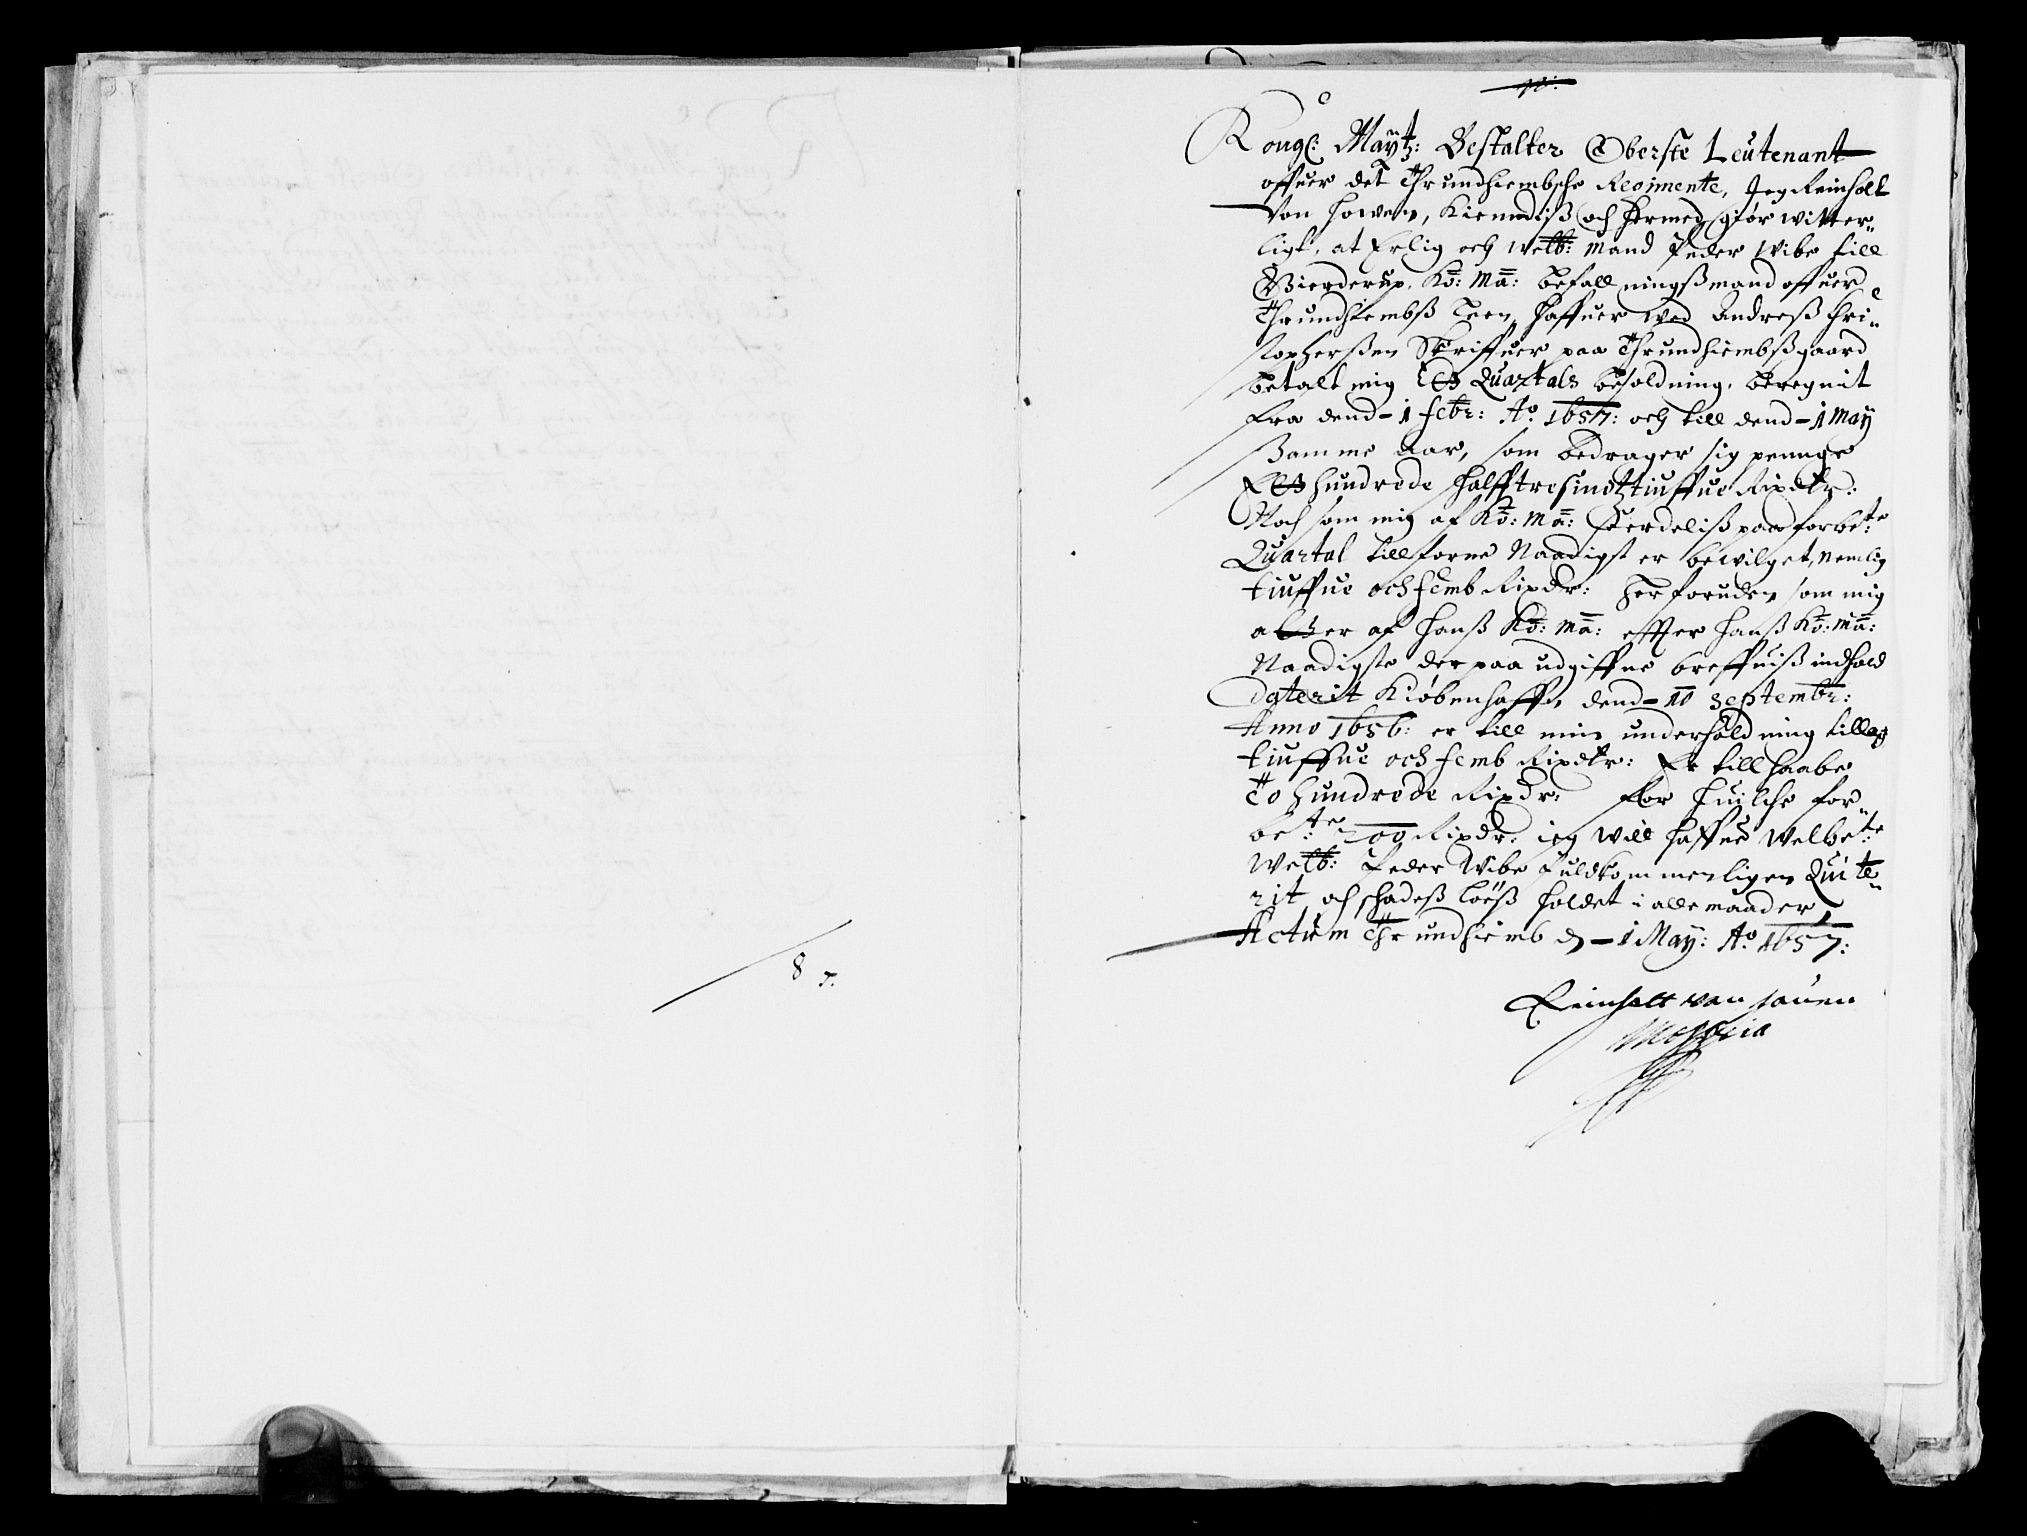 8 3.
Kongl: Maytz: Bestalter Oberste Leutenant
offuer det Thrundhiembsche Regimente, Jeg Reinholt
Von Howen, Kiendiß och hermed giør witter„
ligt, at Erlig och Welb: Mand Peder Wibe till
Gierderup, Ko: Ma: befallningßmand offuer
Thrundhiembß Leen, haffuer wed Andreß Chri„
stopherßen Skriffuer paa Thrundhiembßgaard
betalt mig Ett Quartals besoldning, beregnit
fra dend 1 febr: Ao 1657: och till dend 1 May
Samme Aar, som bedrager sig pennge
Ett hundrede halfftresindztiuffue Rixdlr:
Noch som mig af Ko: Ma: Ferdeliß paa forbe:te
Quartal tillforne Naadigst er bewilget, Nemlig
tiuffue och femb Rixdr: Herforuden som mig
alt er af Hanß Ko: Ma: effter Hanß Ko: Ma:
Naadigste derpaa udgiffne breffuiß indhold
daterit Kiøbenhaffn dend 10 Septembr:
Anno 1656: er till min underholdning tillagt
tiuffue och femb Rixdlr: Er tillhaabe
To hundrede Rixdr: For huilche for„
be:te 200 Rixdr: ieg will haffue Welbe:te
Welb: Peder Wibe fuldkommenligen Quite„
rit, och schadeß løeß holdet i alle maader,
Actum Thrundhiemb d. 1 May: Ao 1657:
Reinholt van Hauen